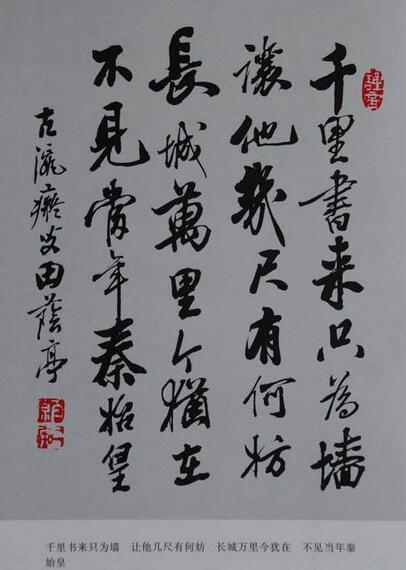 千里書来只為墻
讓他幾尺有何妨
長城萬里今猶在
不見當年秦始皇
古瀛 田蔭亭
千里书来只为墙 让他几尺有何妨 长城万里今犹在 不见当年秦
始皇